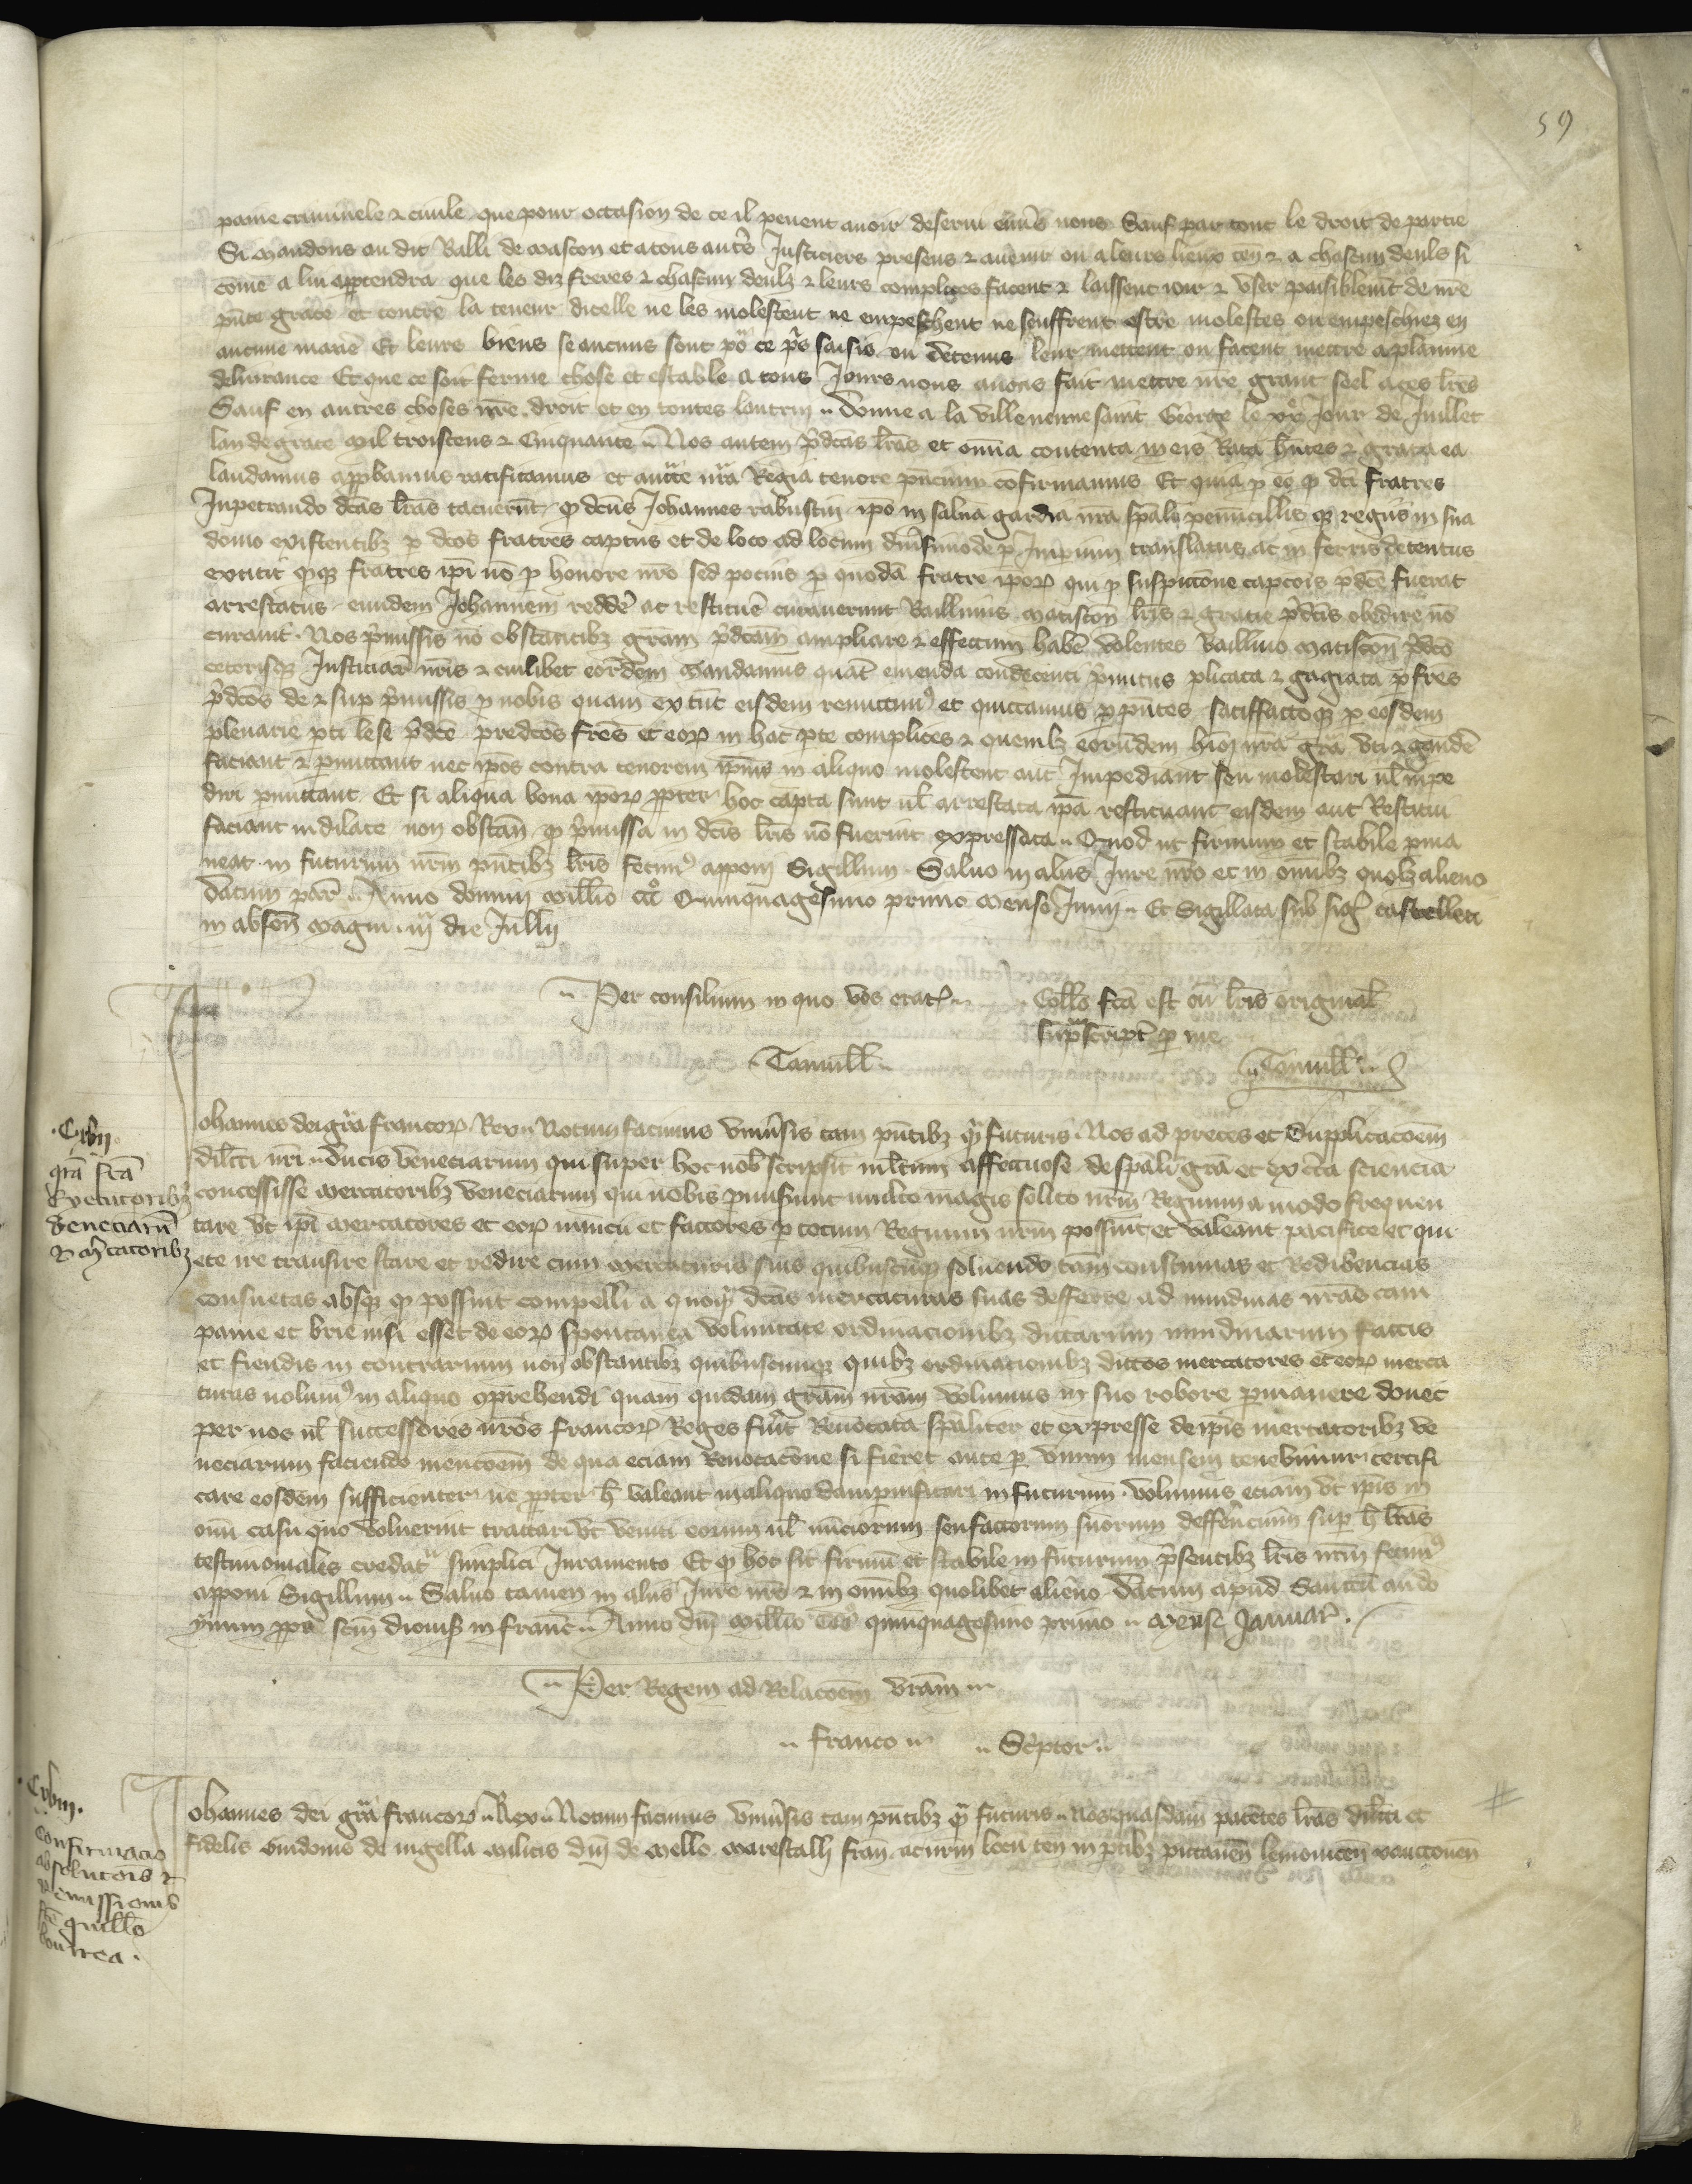 59
paine criminele & ciuile que pour occasion de ce il peuent auoir deserui enu̾s nous Sauf par tout le droit de partie
Si mandons au dit Balli de mascon et a tous aut̾s Justiciers presens & auenir ou a leurs lieux ten̄ & a chascun deuls si
cōme a lui app̱tendra que les diz freres & chascun deulz & leurs complices facent & laissent ioir & vser paisiblem̄t de nr̄e
pn̄te grace et contre la teneur dicelle ne les molestent ne empeschent ne seuffrent estre molestes ou empeschiez en
aucune manē Et leurs biens se aucuns sont po͛ ce pͥs saisis ou detenus leur mettent ou facent mettre a plainne
deliurance Et que ce soit ferme chose et estable a tous Jours nous auons fait mettre nr̄e grant seel a ces lr̄es
Sauf en autres choses nr̄e droit et en toutes lautrui .. Donne a la villeneuue saint George le xxͤ Jour de Juillet
lan de grace mil troiscens & Cinquante .. Nos autem p̄dc̄as lr̄as et om̄ia contenta in eis Rata hn̄tes & grata ea
laudamus app̱bamus ratificamus et auct̄te nr̄a Regia tenore pn̄cium cōfirmamus Et quia ꝑ eo ꝙ dc̄i fratres
Inpetrando dc̄as lr̄as tacuerūt ꝙ dc̄us Johannes rabustin ip̄o in salua gardia nr̄a sp̄ali penūcillis qꝫ regiis in sua
domo existentibꝫ ꝑ dc̄os fratres captus et de loco ad locum diu̾simode ꝑ Imperium translatus ac in ferris detentus
extitit qꝫ fratres ip̄i nō ꝑ honore nr̄o sed pocius ꝑ quodā fratre ip̄oꝝ qui ꝑ suspicōne capcōis p̄dc̄e fuerat
arrestatus eundem Johannem redde̾ ac restitue̾ curauerunt Balliuus matiscoñ lr̄is & gratie p̄dc̄is obedire nō
curauit . Nos p̄missis nō obstantibꝫ gr̄am p̄dc̄am ampliare & effectum habe̾ volentes Balliuo matiscoñ p̄dc̄o
ceterisqꝫ Justiciar̄ nr̄is & cuilibet eorūdem mandamus quat̄ emenda condecenti p̄mitus plicata & gagiata ꝑ fr̄es
p̄dc̄os de & sup̱ p̄missis ꝑ nobis quam ex tūc eisdem remittimꝰ et quictamus ꝑ pn̄tes satiffactoqꝫ ꝑ eosdem
plenarie ꝑti lese p̄dc̄e predc̄os fr̄es et eoꝝ in hac ꝑte complices & quemlꝫ eorumdem hm̄oi nr̄a gr̄a vti & gaude̾
faciant & ꝑmittant nec ip̄os contra tenorem ip̄ius in aliquo molestent aut Impediant seu molestari ul̄ impe
diri ꝑmittant Et si aliqua bona ip̄oꝝ ꝓpter hoc capta sunt ul̄ arrestata ip̄a restituant eisdem aut Restitui
faciant indilate non obstañ ꝙ p̄missa in dc̄is lr̄is nō fuerint expressata .. Quod ut firmum et stabile ꝑma
neat in futurum nr̄m pn̄tibꝫ lr̄is fecimꝰ apponi Sigillum . Saluo in aliis Jure nr̄o et in om̄ibꝫ quolꝫ alieno
Datum par̄ .. Anno domini mill̄io ccc̊ Quinquagesimo primo mense Junij .. Et Sigillata sub sigꝉ castelleti
in abseñ magni . iij die Jullij
.. Per consilium in quo vos eratꝭ .. Coll̄o fc̄a est cū lr̄is original̄
sup̱ᵃscript̄ ꝑ me
Tamull̄ .. .. Tamull̄ ..
Cxlvij
gr̄a fc̄a
Exercitoribꝫ
Veneciarū
& m̾catoribꝫ
Johannes dei gr̄a francoꝝ Rex .. Notum facimus vniu̾sis tam pn̄tibꝫ qᵃ̄ futuris . Nos ad preces et Supplicacōem
dil̄cti nr̄i .. ducis Veneciarum qui super hoc nob̄ scripsit ml̄tum affectuose de sp̄ali gr̄a et ex c̾ta sciencia
concessisse mercatoribꝫ Veneciarum qui nobis ꝓmiserunt multo magis solito nr̄m Regnum a modo frequen
tare vt ip̄i mercatores et eoꝝ nuncii et factores ꝑ totum Regnum nr̄m possint et valeant pacifice et qui
ete ire transire stare et redire cum mercaturis suis quibuscūqꝫ soluendo tam̄ coustumas et Redibencias
consuetas absqꝫ ꝙ possint compelli a quoqᵃ̄ dc̄as mercaturas suas defferre ad nundinas nr̄as cam
panie et brie nisi esset de eoꝝ spontanea voluntate ordinacionibꝫ dictarum nundinarum factis
et fiendis in contrarium non obstantibꝫ quibuscumqꝫ quibꝫ ordinacionibꝫ dictos mercatores et eoꝝ merca
turas nolumꝰ in aliquo ꝯprehendi quam quidam gr̄am nr̄am volumus in suo robore ꝑmanere donec
per nos ul̄ successores nr̄os francoꝝ Reges fu̾it Reuocata sp̄aliter et expresse de ip̄is mercatoribꝫ ve
neciarum faciendo mencōem de qua eciam Reuocacōne si fieret ante ꝑ vnum mensem tenebimur certifi
care eosdem sufficienter ne ꝓpter h̄ valeant in aliquo dampnificari in futurum . volumus eciam vt ip̄is in
om̄i casu quo voluerint tractari vt veniti eorum ul̄ nūciorum seu factorum suorum deffere̾ciūm sup̱ h̄ lr̄as
testimoniales credatᵘ simplici Juramento Et ꝙ hoc sit firmū et stabile in futurum p̄sentibꝫ lr̄is nr̄m fecimꝰ
apponi Sigillum .. Saluo tamen in aliis Jure nr̄o & in om̄ibꝫ quolibet alieno . Datum apud Sanctū audo
ynum ꝓpe sc̄m dionisꝭ in franc̄ .. Anno dn̄i mill̄io ccc̊ quinquagesimo primo .. Mense Januar̄ .
.. Per Regem ad Relacōem vr̄am ..
.. Franco .. .. Sc̾ptor ..
Cxlviij .
Confirmacio
absolucōis &
Remissionis
fc̄e guill̄o
bourrea .
Johannes dei gr̄a francoꝝ .. Rex .. Notum facimus vniu̾sis tam pn̄tibꝫ qᵃ̄ futuris .. Nos quasdam patentes lr̄as dil̄cti et
fidelis Guidonis de nigella militis dn̄i de mello marescalli frañ ac nr̄m locū teñ in ꝑtibꝫ pictaueñ lemouiceñ xanctoneñ